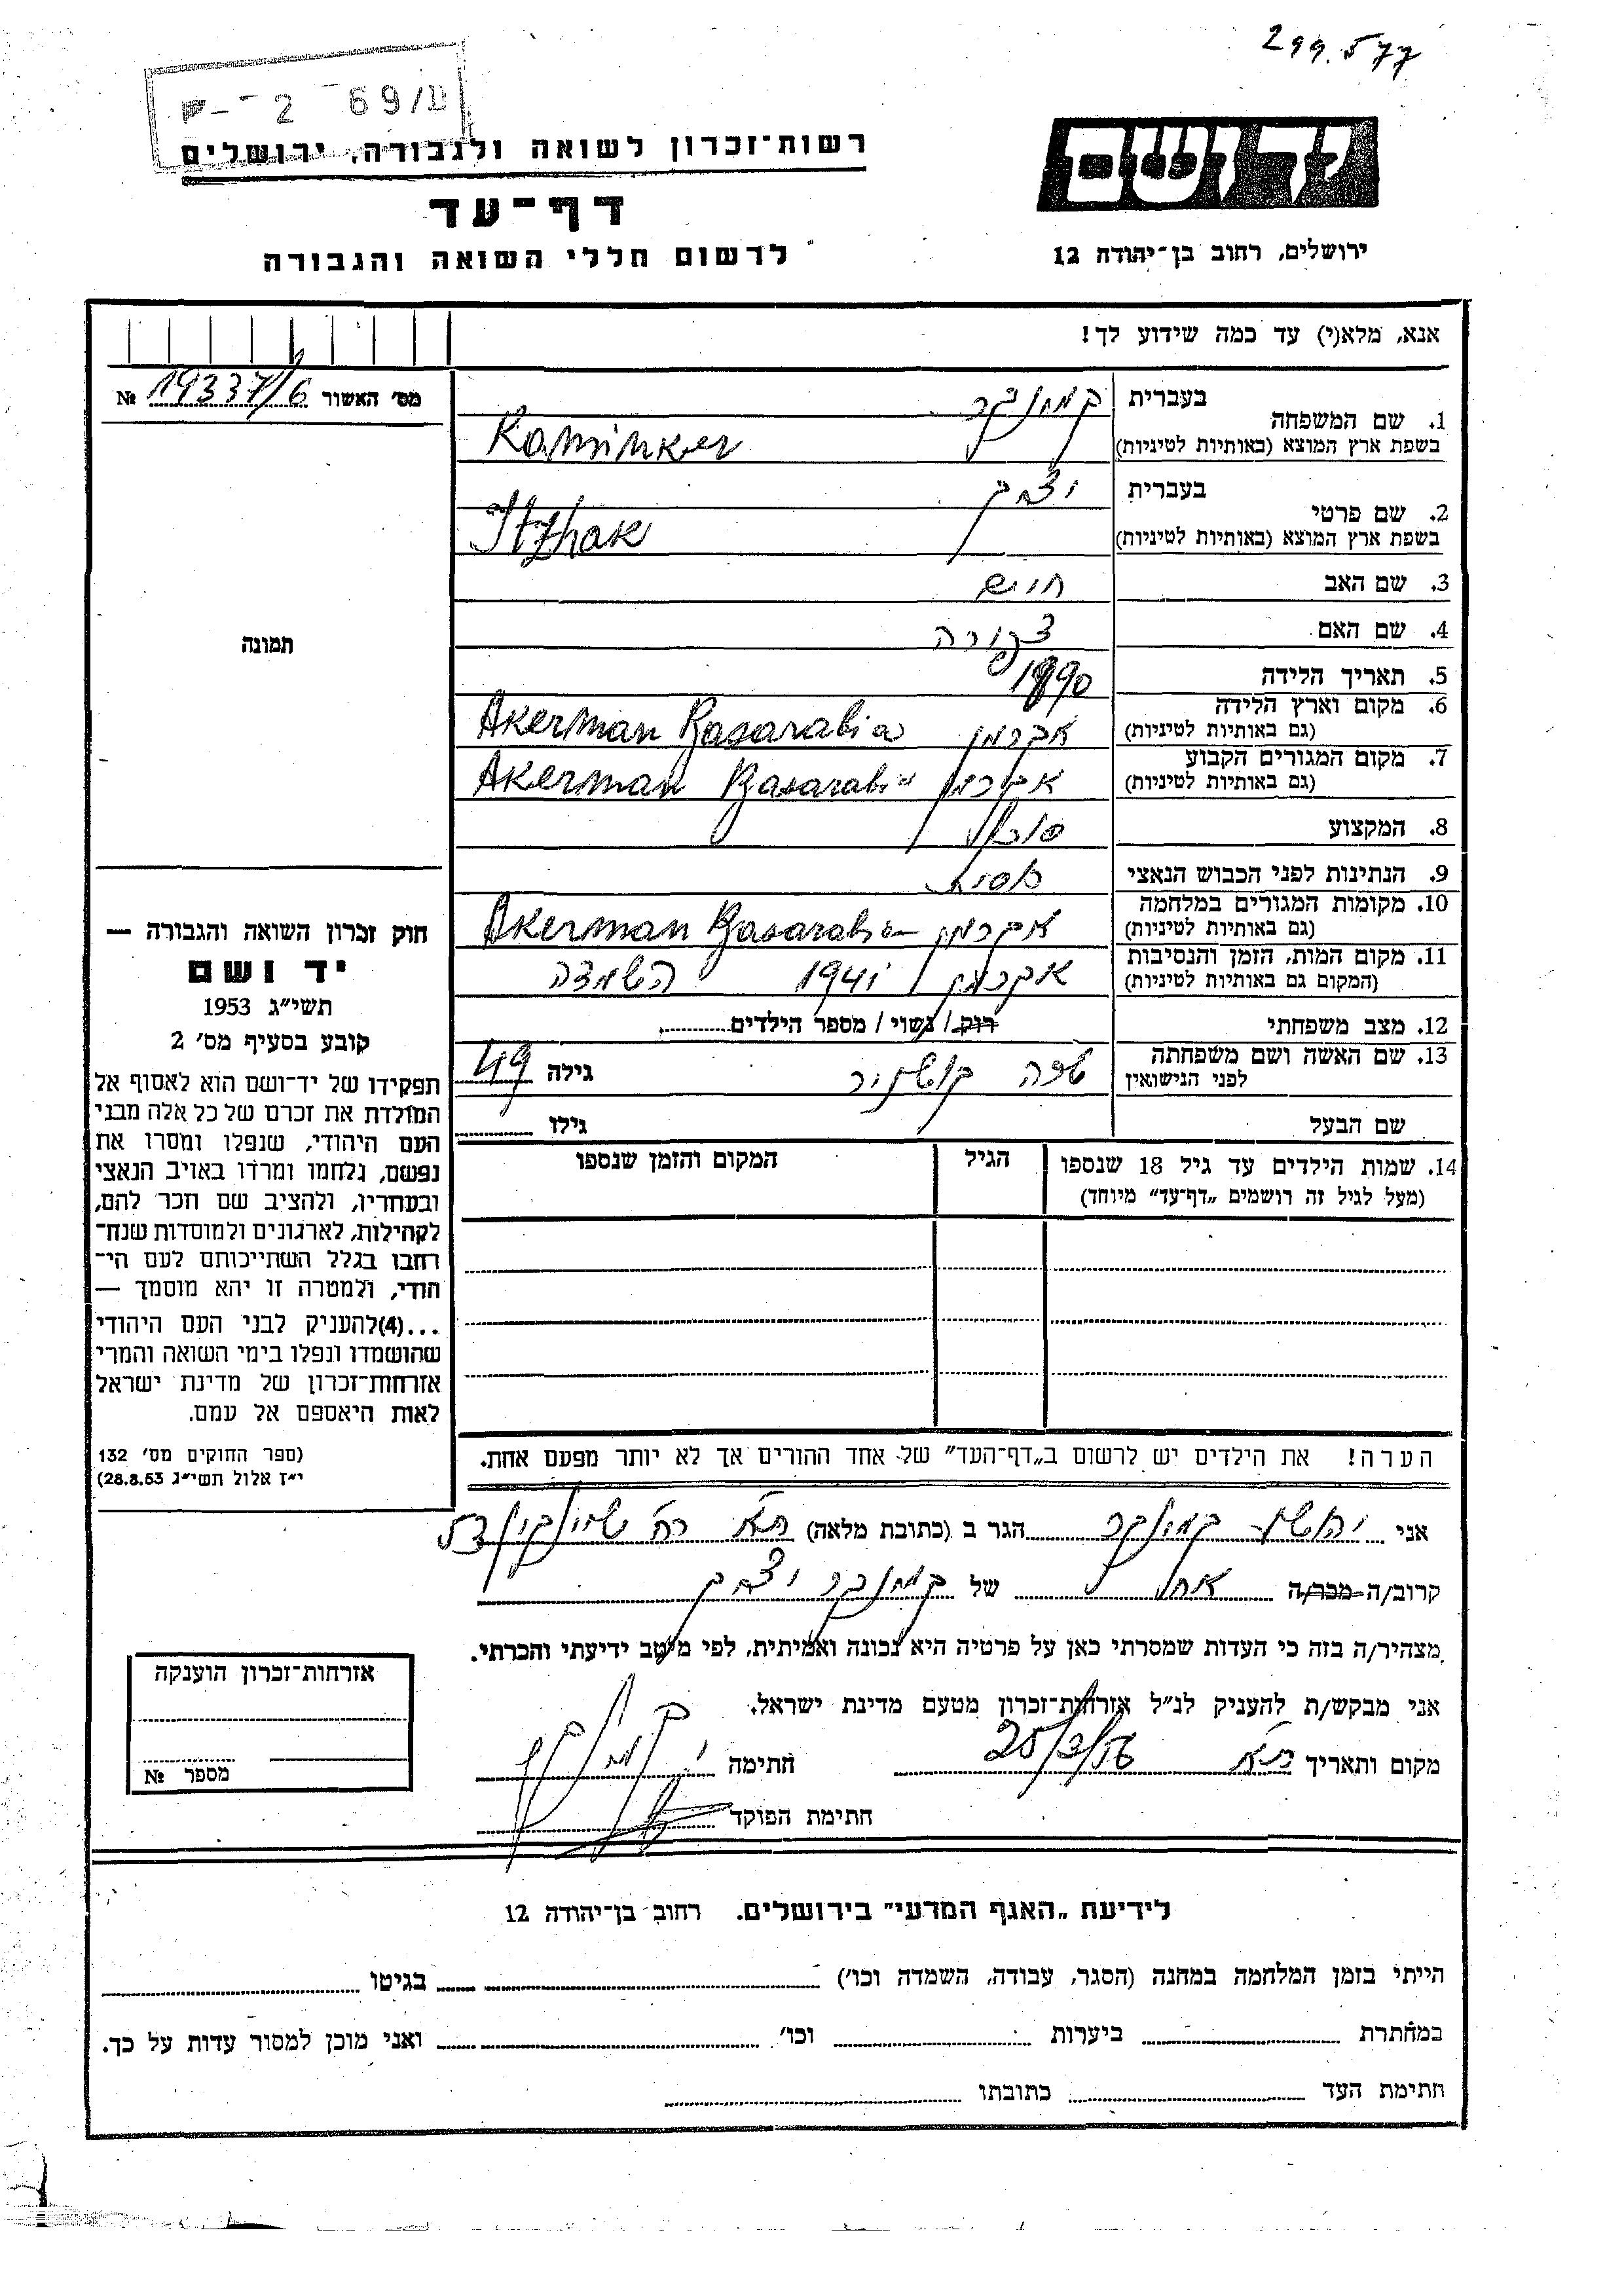 299577
- 2 - 69/II
רשות־זכרון לשואה ולגבורה, ירושלים
יד ושם
דף־עד
ירושלים, רחוב בן־יהודה 12
לרשום חללי השואה והגבורה
אנא, מלא(י) עד כמה שידוע לך!
מס׳ האשור 19337/6 №
1. שם המשפחה בעברית קמינקר
בשפת ארץ המוצא (באותיות לטיניות) Kaminker
2. שם פרטי בעברית יצחק
בשפת ארץ המוצא (באותיות לטיניות) Itzhak
3. שם האב חיים
4. שם האם צפורה
5. תאריך הלידה 1890
6. מקום וארץ הלידה אקרמן Akerman Basarabia
(גם באותיות לטיניות)
7. מקום המגורים הקבוע אקרמן Akerman Basarabia
(גם באותיות לטיניות)
8. המקצוע סוכן
9. הנתינות לפני הכבוש הנאצי
10. מקומות המגורים במלחמה אקרמן Akerman Basarabia
(גם באותיות לטיניות)
11. מקום המות, הזמן והנסיבות אקרמן 1941 השמדה
(המקום גם באותיות לטיניות)
12. מצב משפחתי רוק / נשוי / מספר הילדים
13. שם האשה ושם משפחתה לפני הנישואין קושניר גילה 49
שם הבעל גילו
14. שמות הילדים עד גיל 18 שנספו הגיל המקום והזמן שנספו
(מעל לגיל זה רושמים „דף־עד” מיוחד)
הערה! את הילדים יש לרשום ב„דף־העד” של אחד ההורים אך לא יותר מפעם אחת.
תמונה
חוק זכרון השואה והגבורה —
יד ושם
תשי״ג 1953
קובע בסעיף מס׳ 2
תפקידו של יד־ושם הוא לאסוף אל
המולדת את זכרם של כל אלה מבני
העם היהודי, שנפלו ומסרו את
נפשם, נלחמו ומרדו באויב הנאצי
ובעוזריו, ולהציב שם וזכר להם,
לקהילות, לארגונים ולמוסדות שנח־
רחבו בגלל השתייכותם לעם הי־
הודי, ולמטרה זו יהא מוסמך —
...(4)להעניק לבני העם היהודי
שהושמדו ונפלו בימי השואה והמרי
אזרחות־זכרון של מדינת ישראל
לאות היאספם אל עמם.
(ספר החוקים מס׳ 132
י״ז אלול תשי״ג 28.8.53)
אני יהושע קמינקר הגר ב (כתובת מלאה) ת״א רח׳ 53
קרוב/ה־מכר/ה אח של קמינקר יצחק
מצהיר/ה בזה כי העדות שמסרתי כאן על פרטיה היא נכונה ואמיתית, לפי מיטב ידיעתי והכרתי.
אני מבקש/ת להעניק לנ״ל אזרחות־זכרון מטעם מדינת ישראל.
מקום ותאריך ת״א 25/3/56 חתימה
חתימת הפוקד
אזרחות־זכרון הוענקה
מספר №
לידיעת „האגף המדעי” בירושלים. רחוב בן־יהודה 12
הייתי בזמן המלחמה במחנה (הסגר, עבודה, השמדה וכו׳) בגיטו
במחתרת ביערות וכו׳ ואני מוכן למסור עדות על כך.
חתימת העד כתובתו